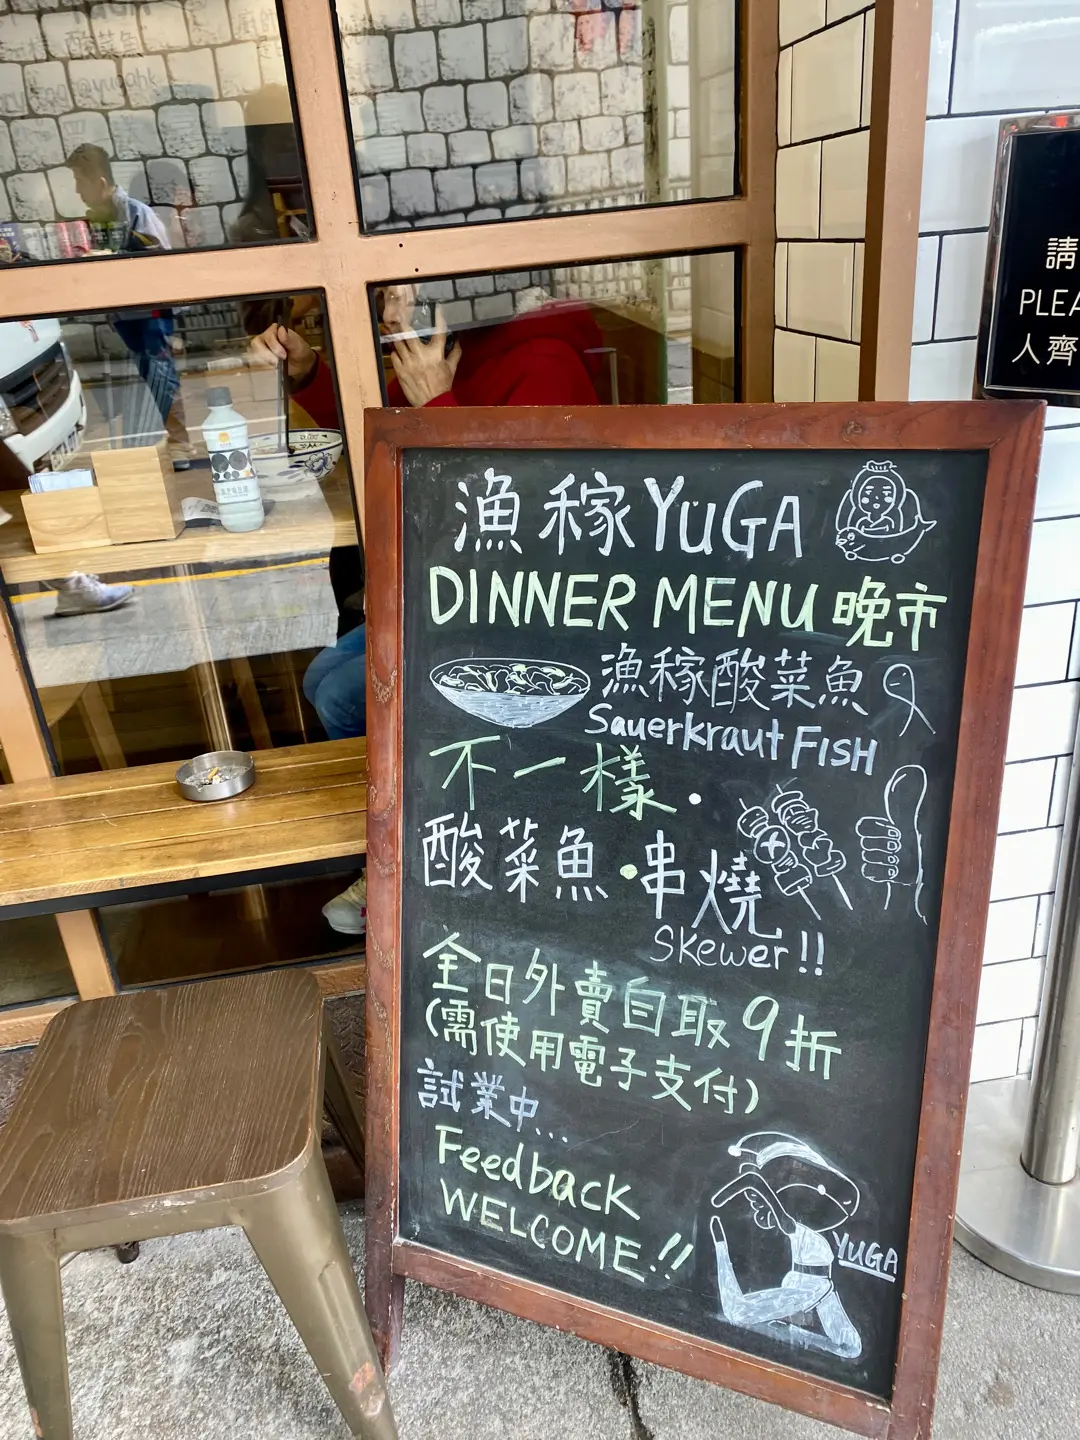 漁稼YUGA
DINNER MENU 晚市
漁稼酸菜魚
Sauerkraut FISH
不一樣.
酸菜魚·串燒
Skewer!!
全日外賣自取9折
(需使用電子支付)
試業中...
Feedback
WELCOME!!
YUGA
請
PLEA
人齊
酸菜魚
@yugahk